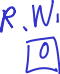 R, W,
0